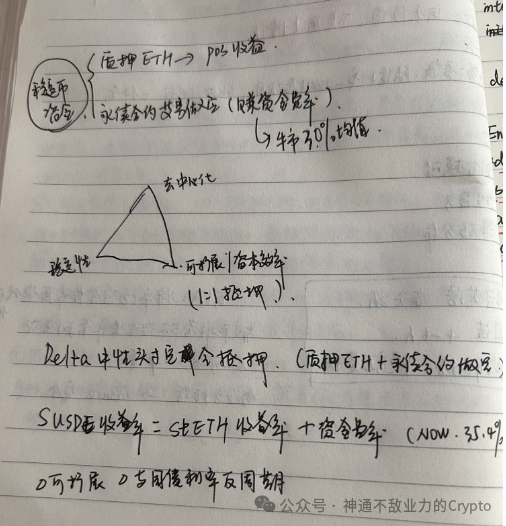 质押ETH → pos收益.
稳定币
资金
永续合约
做空 (赚资金费率).
↳ 牛市30%均值.
去中心化
稳定性
可扩展/资本效率
(1:1抵押).
Delta中性头寸足额全抵押. (质押ETH + 永续合约做空
SUSDE收益率 = stETH收益率 + 资金费率 (NOW. 35.4%
可扩展 与国债利率反周期
公众号 · 神通不敌业力的Crypto